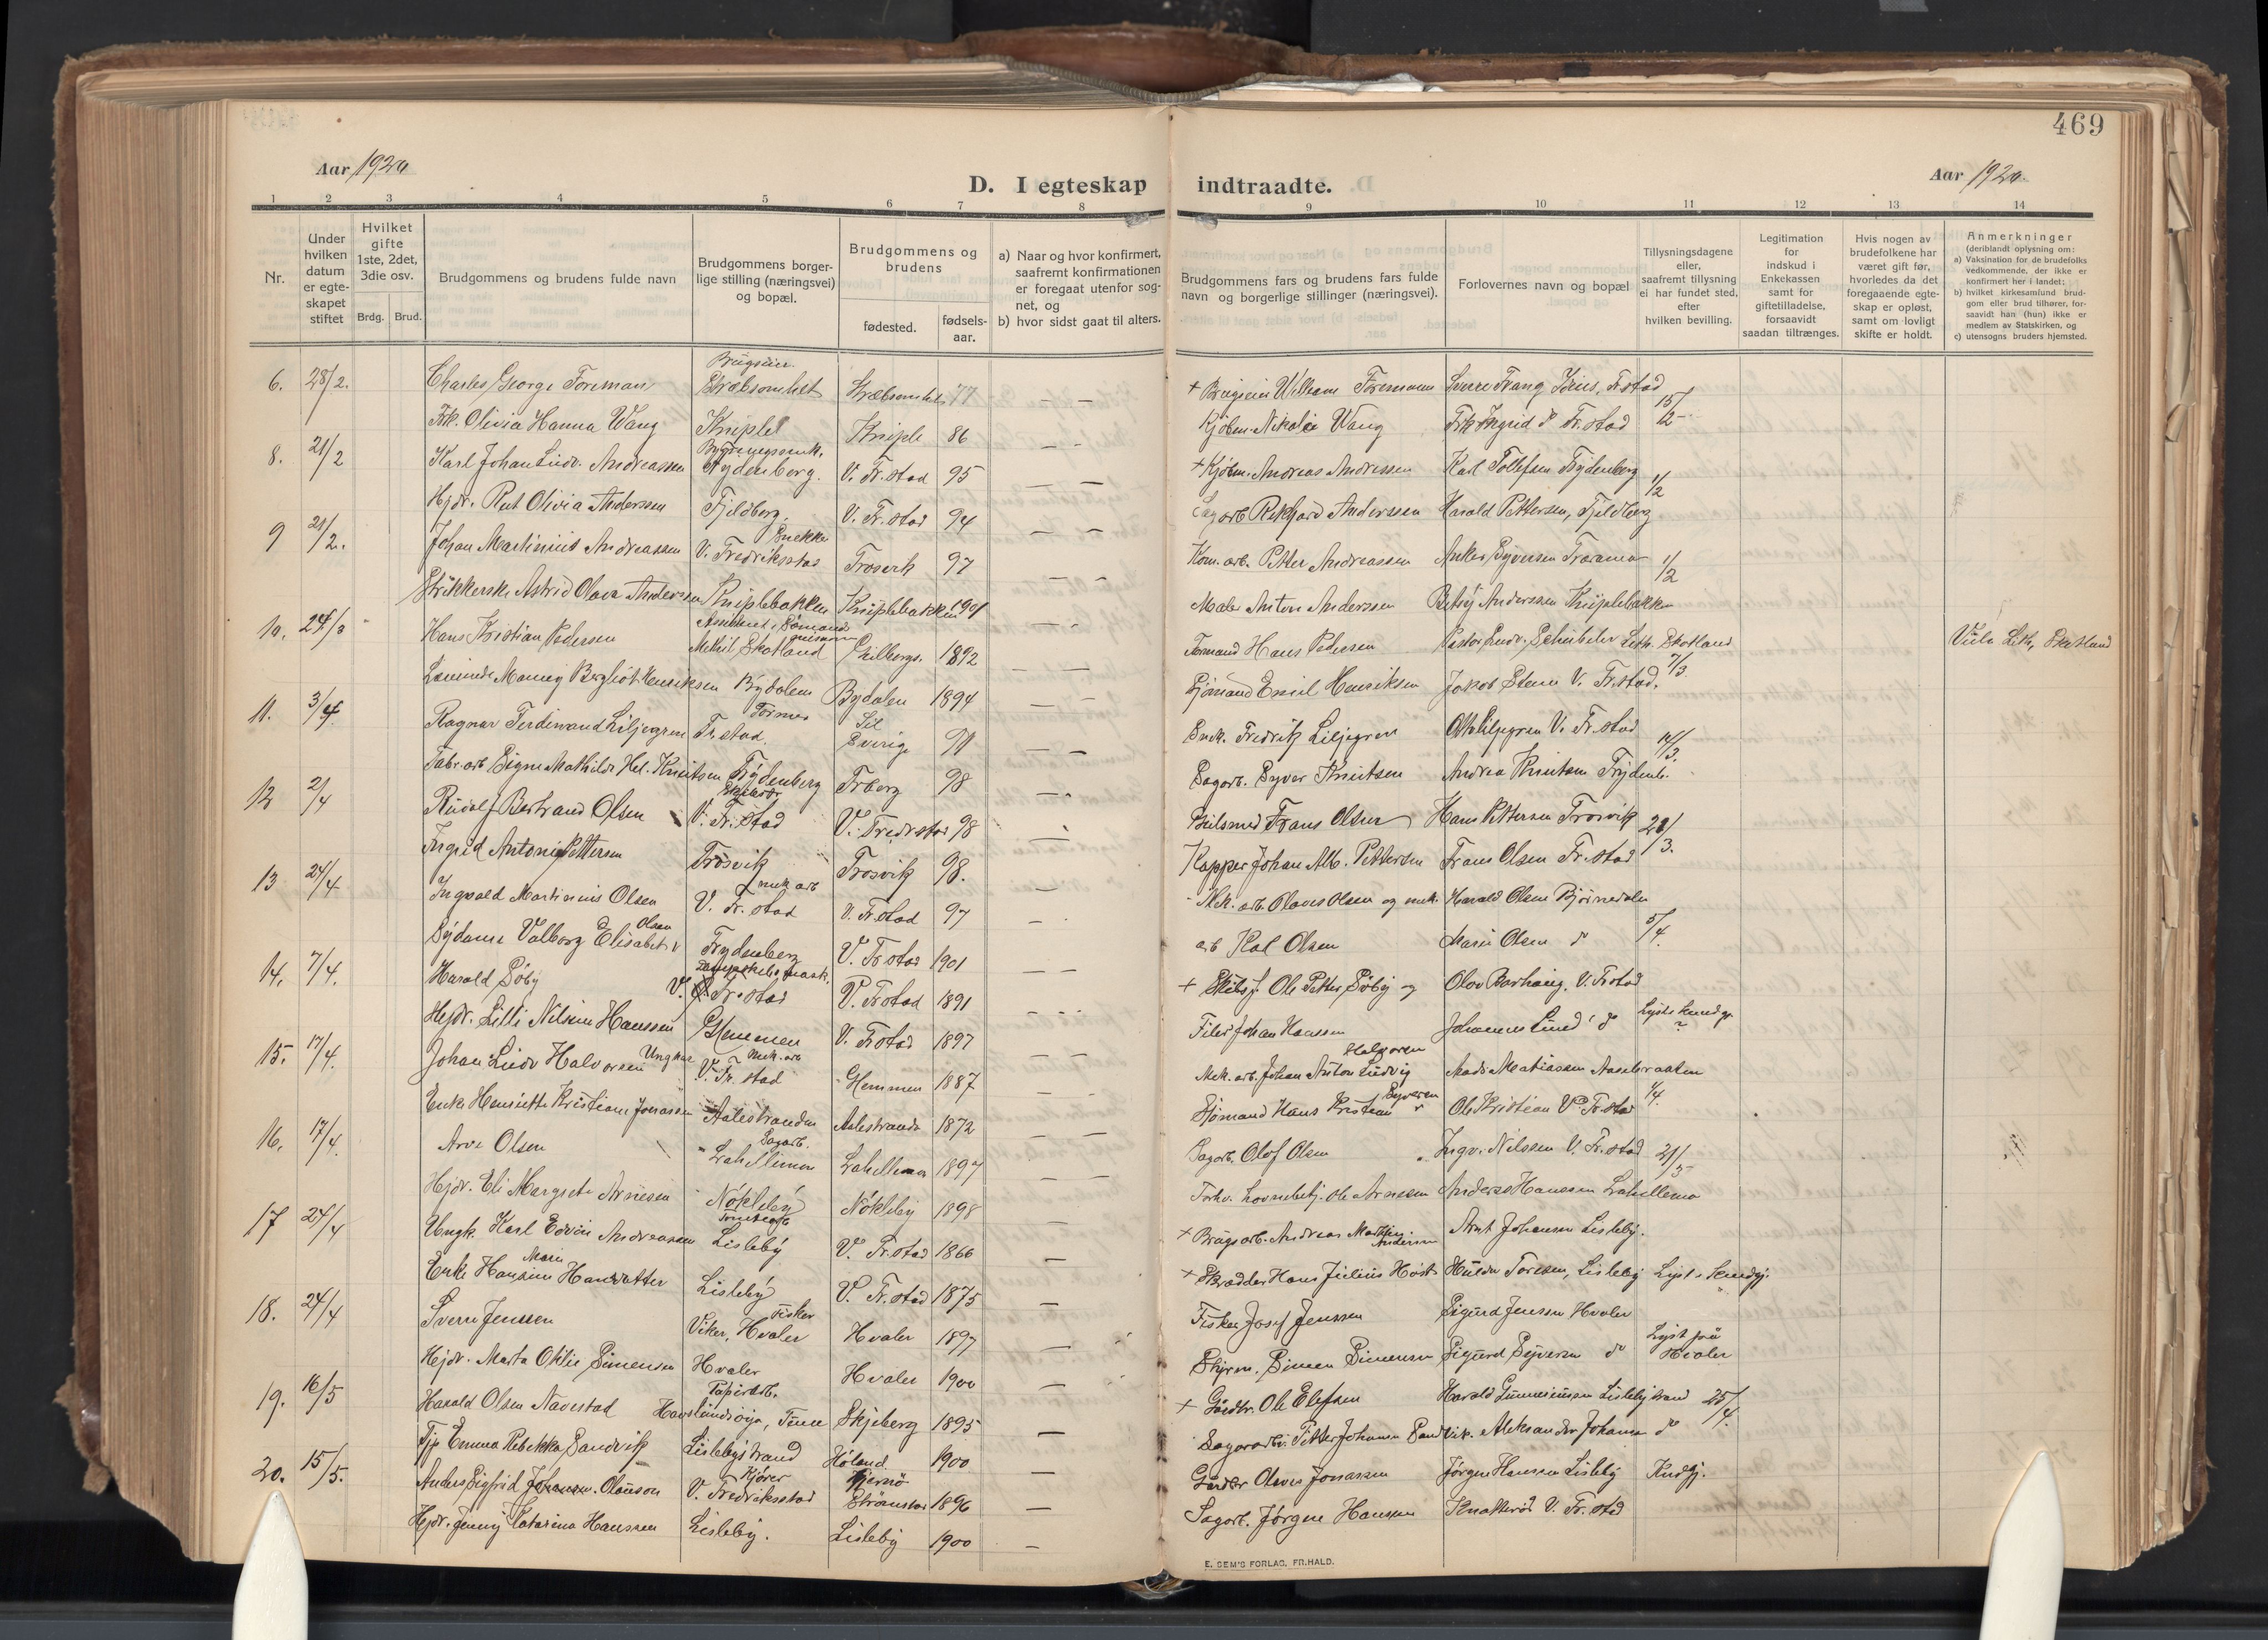 469
Aar 1920
Aar 1920.
D. I egteskap indtraadte.
1 2 3 4 5 6 7 8 9 10 11 12 13 14
Nr.
Under hvilken datum er egte-skapet stiftet
Hvilket gifte 1ste, 2det, 3die osv.
Brdg. Brud.
Brudgommens og brudens fulde navn
Brudgommens borger-lige stilling (næringsvei) og bopæl.
Brudgommens og brudens
fødested.
fødsels-aar.
a) Naar og hvor konfirmert, saafremt konfirmationen er foregaat utenfor sog-net, og
b) hvor sidst gaat til alters.
Brudgommens fars og brudens fars fulde navn og borgerlige stillinger (næringsvei).
Forlovernes navn og bopæl
Tillysningsdagene eller, saafremt tillysning ei har fundet sted, efter hvilken bevilling.
Legitimation for indskud i Enkekassen samt for giftetilladelse, forsaavidt saadan tiltrænges.
Hvis nogen av brudefolkene har været gift før, hvorledes da det foregaaende egte-skap er opløst, samt om lovligt skifte er holdt.
Anmerkninger
(deriblandt oplysning om:
a) Vaksination for de brudefolks vedkommende, der ikke er konfirmert her i landet:
b) hvilket kirkesamfund brud-gom eller brud tilhører, for-saavidt han (hun) ikke er medlem av Statskirken, og
c) utensogns bruders hjemsted.
6. 28/2. Charles George Foreman Brugseier. Græbsomhet 77 — — + Brugseier William Foremann Fr.stad
Frk. Olivia Hanna Wang Kniple Kniple 86 — — Kjøbm. Nikolai Wang Frk Ingrid do Fr.stad 15/2
8. 21/2 Karl Johan Ludv. Andreassen Frydenberg. V. Fr.stad 95 — — + Kjøbm. Andreas Andreassen Karl Tollefsen Frydenberg 1/2
Hjdv. Rut Olivia Anderssen Fjeldberg. V. Fr.stad 94 — — Sagarb Rikhard Anderssen Harald Pettersen, Fjeldberg
9 21/2. Johan Martinius Andreassen Snekker V. Fredriksstad Trosvik 97 — — Kom. arb. Petter Andreassen Anker Syversen 1/2
Strikkerske Astrid Olava Anderssen Kniplebakken Kniplebakken 1901 Maler Anton Anderssen Betsy Anderssen Kniplebakken
10. 24/3 Hans Kristian Pedersen Methil Skotland 1892 — — Formand Hans Pedersen Leith Skotland Leith, Skotland
Berghiot Henriksen Bydalen Bydalen 1894 — Sjømand Emil Henriksen Jakob Steen V. Fr.stad. 7/3
11. 3/4 Ragnar Ferdinand Liljegren Former Fr.stad. Sil Sverige 91 — — Snek. Fredrik Liljegren V. Fr.stad 14/3.
Fabr.arb Signe Mathilde Hel. Knutsen Frydenberg Træborg 98 — Sagarb. Syver Knutsen Andrea Knutsen Frydenb.
12 2/4 Rudolf Bertrand Olsen V. Fr.stad V. Fredrstad 98 — Seilsmed Frans Olsen Hans Pettersen Trosvik 21/3.
Ingrid Antonie Pettersen Trosvik Trosvik 98. — Kapper Johan Alb. Pettersen Frans Olsen Fr.stad
13 24/4 Ingvald Martinius Olsen mek arb V. Fr. stad V. Fr.stad 97 — Mek. arb. Olaves Olsen og mek. Harald Olsen Bjørnedalen
Sydame Valborg Elisabet Olsen Frydenberg V. Fr stad 1901 arb Karl Olsen Marie Olsen do 5/4.
14. 7/4. Harald Søby V. Fr. stad V. Fr stad 1891 + Skibsf. Ole Petter Søby og V. Frstad
Hjdv. Lilli Nilsine Hanssen Glemmen V. Frstad 1897 Filer Johan Hanssen Johannes Lund do Lyst i
15. 17/4. Johan Ludv Halvorsen Ungkar Mek. arb V. Fr. stad Glemmen 1887 — — Mek. arb. Johan Anton Ludvig Halvorsen Mads Mathiassen
Enke Henriette Kristiane Jonassen Aalestranden Aalestranden 1872 Sjømand Hans Kristian Syversen Ole Kristian V. Fr.stad 4/4.
16. 17/4. Arve Olsen Sagarb. Lahellemoen Lahellemoen 1897 — — Sagarb. Olof Olsen Ingv. Nilssen V. Fr.stad 21/3
Hjdv. Eli Margrete Arnesen Nökleby Nökleby 1898 Ole Arnesen Anders Hanssen Lahellemo
17 24/4 Ungk. Karl Edvin Andreassen Lisleby V. Fr.stad 1866 — + Brugsarb. Andreas Martin Anderssen Arnt Johansen Lisleby.
Enke Hansine Marie Hansdatter Lisleby V. Fr.stad 1875 — + Skrædder Hans Julius Høst Hulda Toresen, Lisleby Lyst i
18. 24/4 Sverre Jenssen Fisker Viker, Hvaler Hvaler 1897 — Fisker Josef Jenssen Sigurd Jenssen Hvaler
Hjdv. Marta Otilie Simensen Hvaler Hvaler 1900 — Simen Simensen Sigurd Syversen do Lyst paa Hvaler
19. 16/5 Harald Olsen Navestad Papirarb. Havslundsøya, Tune Skjeberg 1895 — + Gårdbr. Ole Elefsen Harald Gunneriussen Lislebystrand 25/4.
Tjp Emma Rebekka Sandvik Lislebystrand Höland 1900 — Sagarb. Petter Johansen Sandvik. Aleksander Johansen do
20. 15/5. Anders Sigfrid Johansen. Olauson Kjører V. Fredriksstad Tjernö Strømstad 1896 — Gårdbr Olaves Jonassen Jörgen Hansen Lisleby
Hjdv. Jenny Katarina Hanssen Lisleby. Lisleby 1900 — Sagarb. Jörgen Hanssen Knatterød V. Fr. stad
E. SEM'S FORLAG, FR.HALD.